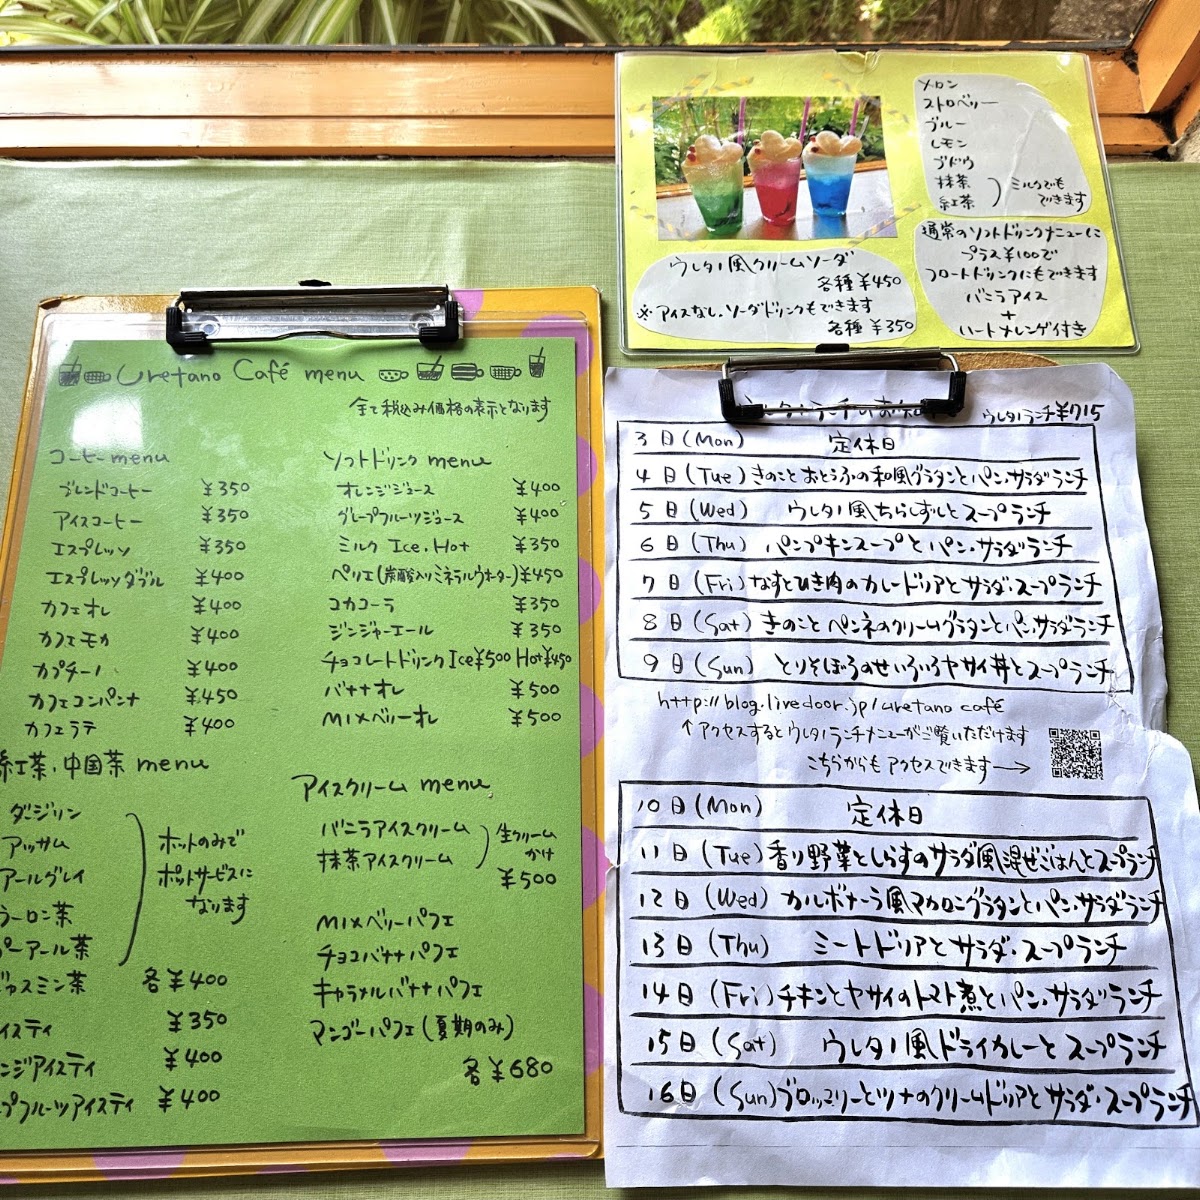 メロン
ストロベリー
ブルー
レモン
ブドウ
抹茶
紅茶
ミルクでも
できます
ウレタノ風クリームソーダ
各種 ¥450
※アイスなし、ソーダドリンクもできます
各種 ¥350
通常のソフトドリンクメニューに
プラス¥100で
フロートドリンクにもできます
バニラアイス
+
ハートメレンゲ付き
Uretano Café menu
全て税込み価格の表示となります
コーヒー menu
ブレンドコーヒー ¥350
アイスコーヒー ¥350
エスプレッソ ¥350
エスプレッソダブル ¥400
カフェオレ ¥400
カフェモカ ¥400
カプチーノ ¥400
カフェコンパンナ ¥450
カフェラテ ¥400
紅茶、中国茶 menu
ダージリン
アッサム
アールグレイ
ウーロン茶
プーアール茶
ジャスミン茶 各¥400
ホットのみで
ポットサービスに
なります
イスティ ¥350
ンジアイスティ ¥400
プフルーツアイスティ ¥400
ソフトドリンク menu
オレンジジュース ¥400
グレープフルーツジュース ¥400
ミルク Ice.Hot ¥350
ペリエ(炭酸入りミネラルウオーター) ¥450
コカコーラ ¥350
ジンジャーエール ¥350
チョコレートドリンク Ice¥500 Hot¥450
バナナオレ ¥500
MIXベリーオレ ¥500
アイスクリーム menu
バニラアイスクリーム
抹茶アイスクリーム
生クリーム
かけ
¥500
MIXベリーパフェ
チョコバナナパフェ
キャラメルバナナパフェ
マンゴーパフェ(夏期のみ)
各 ¥680
ウレタノランチのお知らせ ウレタノランチ¥715
3日(Mon) 定休日
4日(Tue) きのことおとうふの和風グラタンとパン、サラダランチ
5日(Wed) ウレタノ風ちらしずしとスープランチ
6日(Thu) パンプキンスープとパン、サラダランチ
7日(Fri) なすとひき肉のカレードリアとサラダ、スープランチ
8日(Sat) きのことペンネのクリームグラタンとパン、サラダランチ
9日(Sun) とりそぼろのせいろいろヤサイ丼とスープランチ
http://blog.livedoor.jp/uretano café
↑アクセスするとウレタノランチメニューがご覧いただけます
こちらからもアクセスできます→
10日(Mon) 定休日
11日(Tue) 香り野菜としらすのサラダ風混ぜごはんとスープランチ
12日(Wed) カルボナーラ風マカロニグラタンとパン、サラダランチ
13日(Thu) ミートドリアとサラダ、スープランチ
14日(Fri) チキンとヤサイのトマト煮とパン、サラダランチ
15日(Sat) ウレタノ風ドライカレーとスープランチ
16日(Sun) ブロッコリーとツナのクリームドリアとサラダ、スープランチ